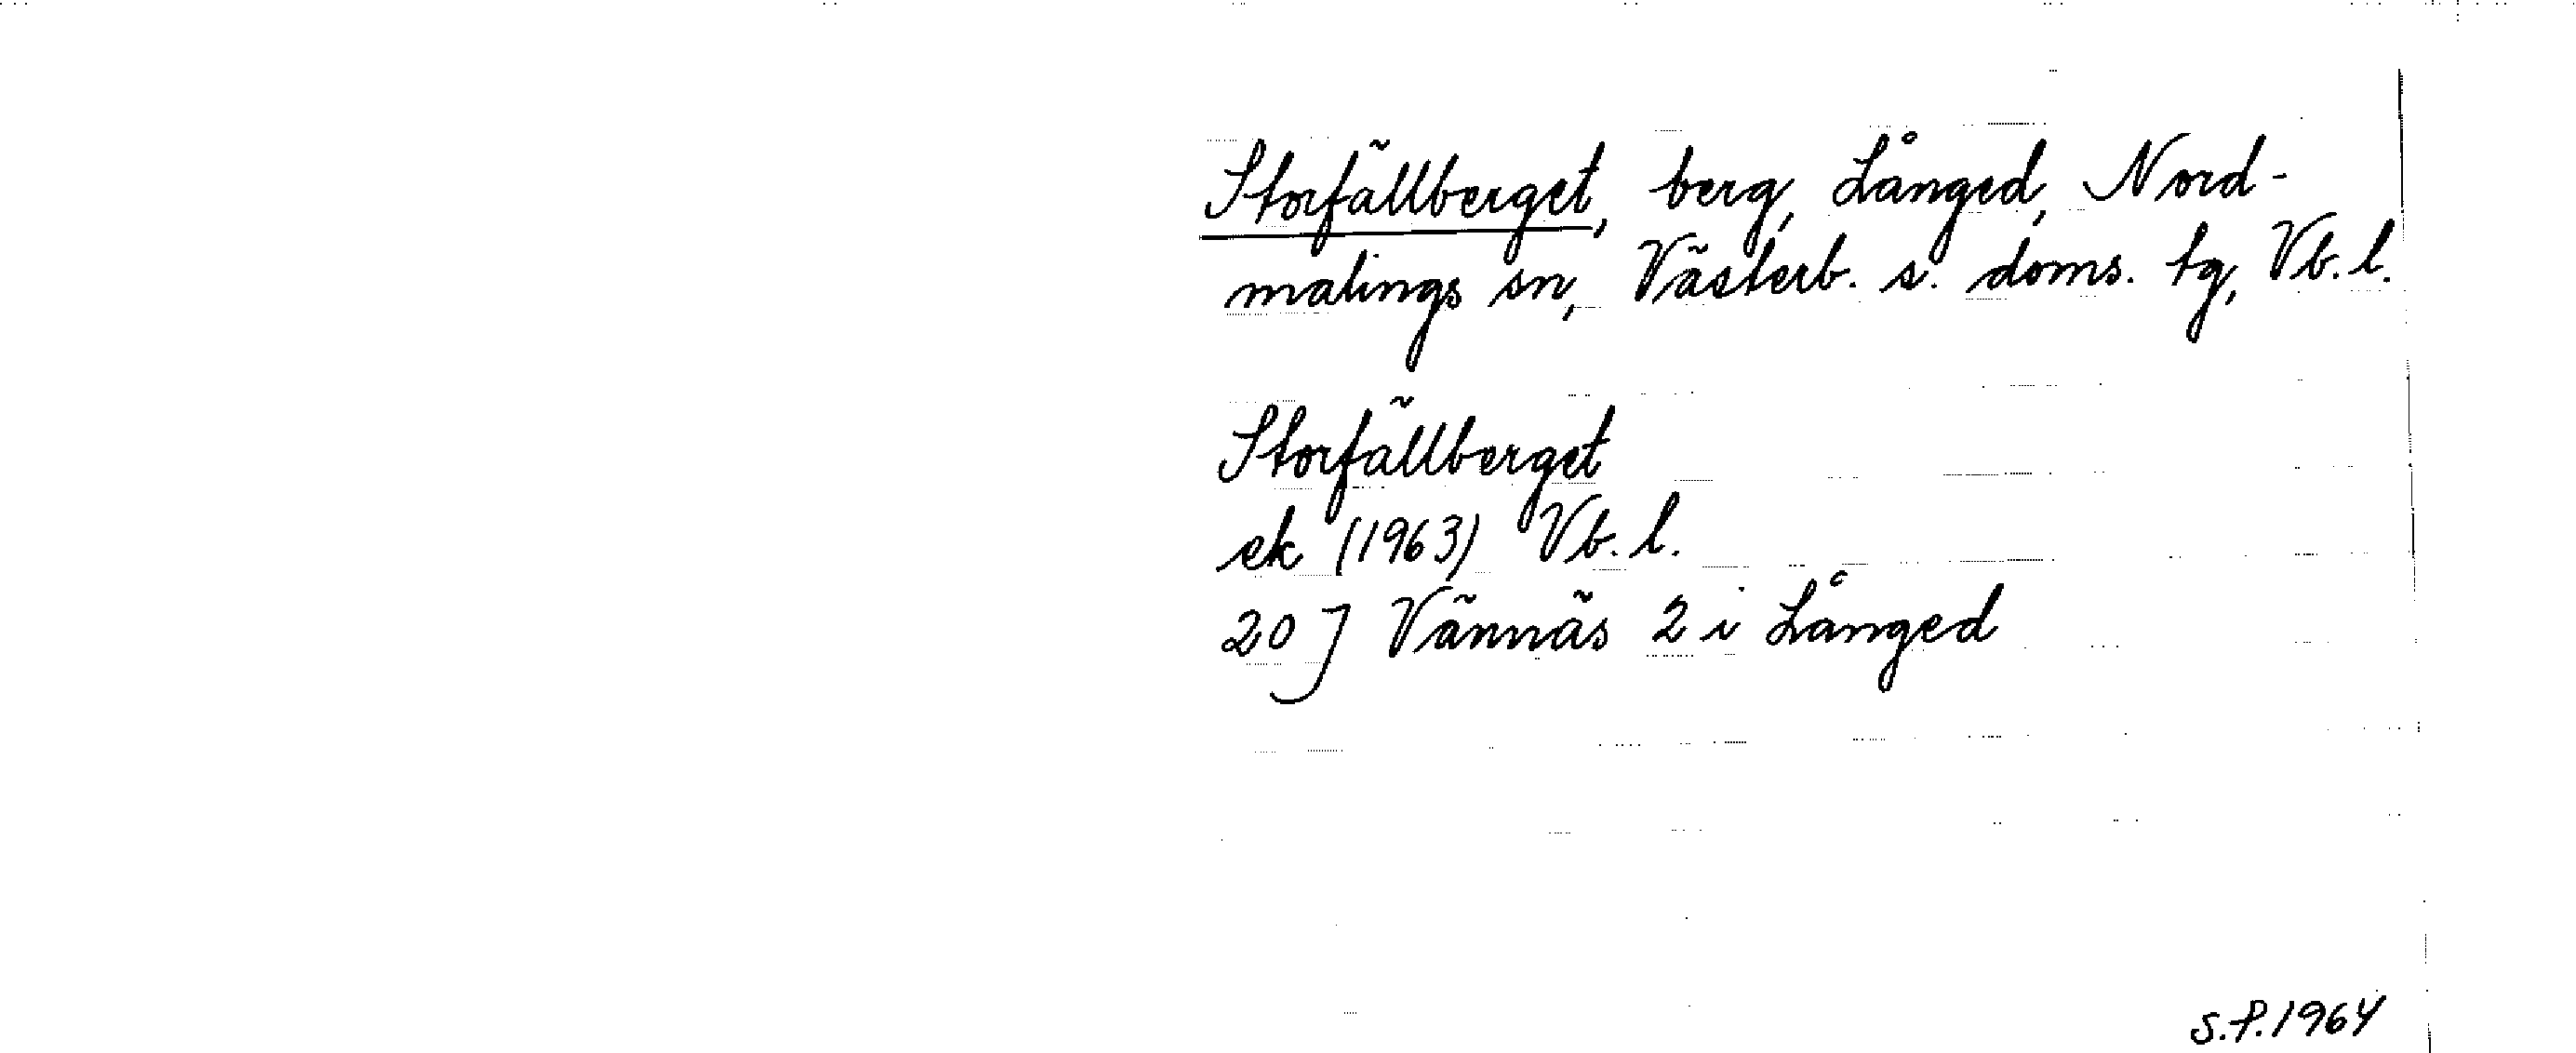 Storfällberget, berg, Långed, Nord-
malings sn, Västerb. s. doms. tg, Vb. l.
Storfällberget
ek (1963) Vb. l.
20 J Vännäs 2 i Långed
S.P. 1964